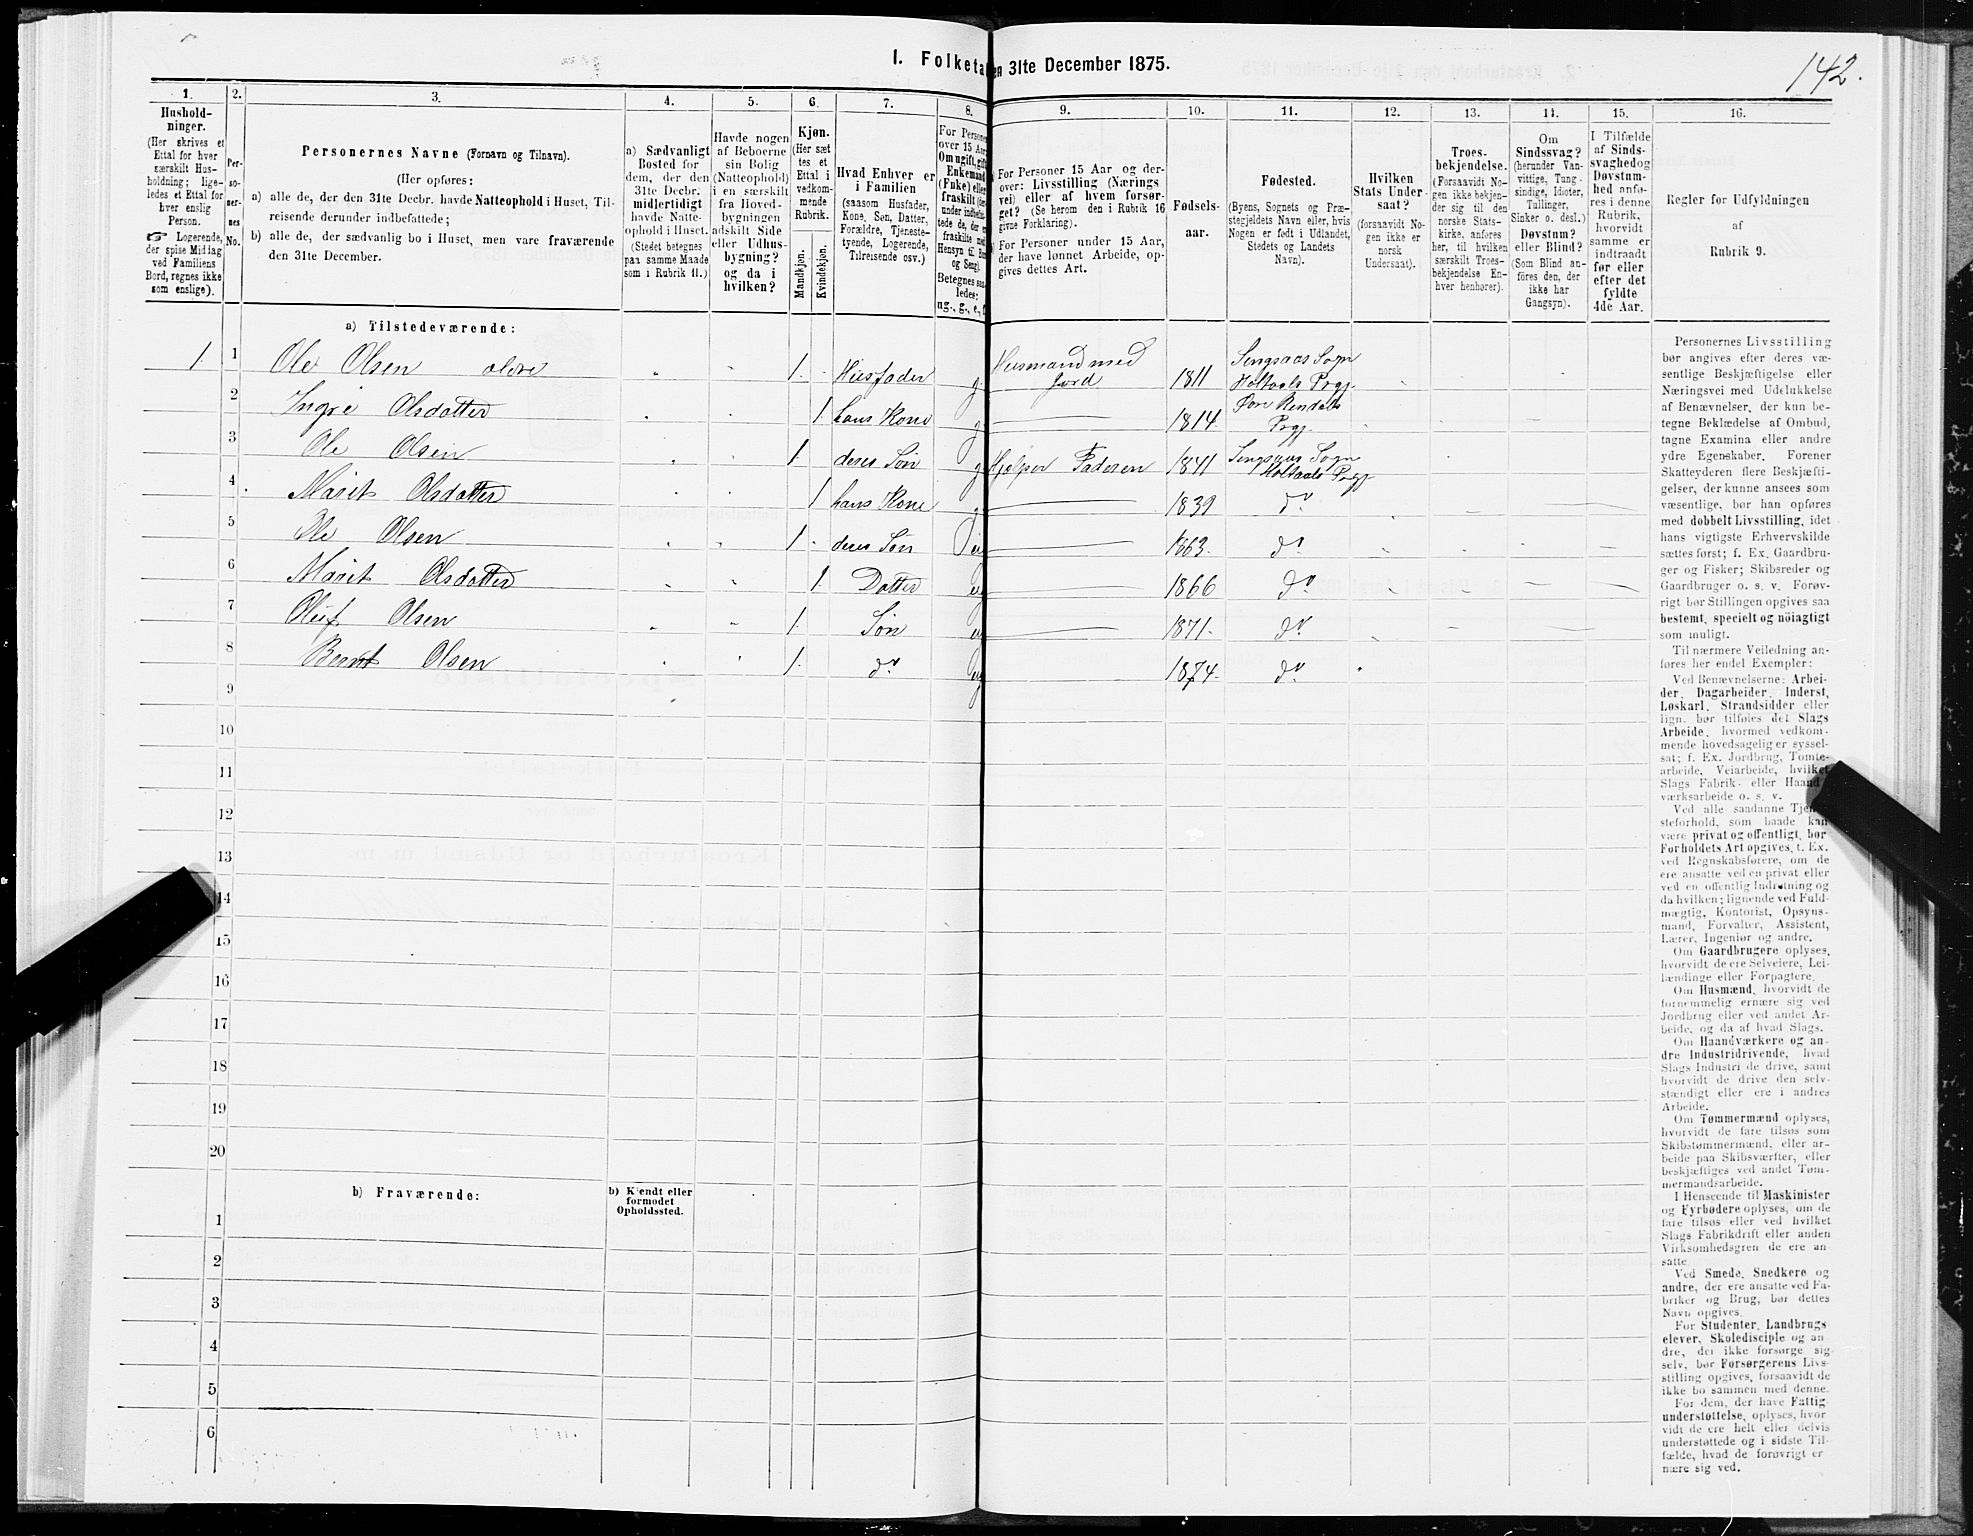 1. Folketa en 31te December 1875.
142.
1.
Hushold-
ninger.
(Her skrives et
Ettal for hver
særskilt Hus-
holdning; lige-
ledes et Ettal for
hver enslig
Person.
☞ Logerende,
der spise Middag
ved Familiens
Bord, regnes ikke
som enslige).
2.
Per-
so-
ner-
nes
No.
3.
Personernes Navne (Fornavn og Tilnavn).
(Her opføres:
a) alle de, der den 31te Decbr. havde Natteophold i Huset, Til-
reisende derunder indbefattede;
b) alle de, der sædvanlig bo i Huset, men vare fraværende
den 31te December.
4.
a) Sædvanligt
Bosted for
dem, der den
31te Decbr.
midlertidigt
havde Natte-
ophold i Huset.
(Stedet betegnes
paa samme Maade
som i Rubrik 11.)
5.
Havde nogen
af Beboerne
sin Bolig
(Natteophold)
i en særskilt
fra Hoved-
bygningen
adskilt Side
eller Udhus-
bygning?
og da i
hvilken?
6.
Kjøn.
(Her sæt
tes et
Ettal i
vedkom-
mende
Rubrik.
Mandkjøn.
Kvindekjøn.
7.
Hvad Enhver er
i Familien
(saasom Husfader,
Kone, Søn, Datter,
Forældre, Tjeneste-
tyende, Logerende,
Tilreisende osv.)
8.
For Persone
over 15 Aar
Om ugift, gift
Enkemand
(Enke) eller
fraskilt
Betegnes saa
ledes:
ug., g., e., f
9.
For Personer 15 Aar og der-
over: Livsstilling (Nærings
vei) eller af hvem forsør-
get? (Se herom den i Rubrik 16
givne Forklaring).
For Personer under 15 Aar,
der have lønnet Arbeide, op-
gives dettes Art.
10.
Fødsels-
aar.
11.
Fødested.
(Byens, Sognets og Præ-
stegjeldets Navn eller, hvis
Nogen er født i Udlandet,
Stedets og Landets
Navn).
12.
Hvilken
Stats Under-
saat?
(forsaavidt No-
gen ikke er
norsk
Undersaat).
13.
Troes-
bekjendelse.
(Forsaavidt No-
gen ikke bekjen-
der sig til den
norske Stats-
kirke, anføres
her, til hvilken
særskilt Troes-
bekjendelse En-
hver henhører).
14.
Om
Sindssvag?
(herunder Van-
vittige, Tung-
sindige, Idioter,
Tullinger,
Sinker o. desl.)
Døvstum?
eller Blind?
(Som Blind an-
føres den, der
ikke har
Gangsyn).
15.
I Tilfælde
af Sinds-
svaghed og
Døvstum-
hed anfø-
res i denne
Rubrik,
hvorvidt
samme er
indtraadt
før eller
efter det
fyldte
4de Aar.
16.
Regler for Udfyldningen
af
Rubrik 9.
a) Tilstedeværende:
1. 1 Ole Olsen ældre 1. Husfader g. Husmand med Jord 1811 Singsaas Sogn Holtaals Prgj.
2 Ingri Olsdatter 1 hans Kone g. 1814. Øvre Rendals Prgj.
3 Ole Olsen 1 deres Søn g. Hjelper Faderen 1841 Singsaas Sogn Holtaals Prgj.
4 Marit Olsdatter 1 hans Kone g. 1839 do
5 Ole Olsen 1 deres Søn ug 1863. do
6 Marit Olsdatter 1. Datter ug 1866 do
7 Oluf Olsen 1. Søn ug 1871. do
8 Bernt Olsen 1. do ug 1874. do
9
10
11
12
13
14
15
16
17
18
19
20
b) Fraværende:
b) Kjendt eller
formodet
Opholdssted.
1
2
3
4
5
6
Personernes Livsstilling
bør angives efter deres væ-
sentlige Beskjæftigelse eller
Næringsvei med Udelukkelse
af Benævnelser, der kun be-
tegne Beklædelse af Ombud,
tagne Examina eller andre
ydre Egenskaber. Forener
Skatteyderen flere Beskjæfti-
gelser, der kunne ansees som
væsentlige, bør han opføres
med dobbelt Livsstilling, idet
hans vigtigste Erhvervskilde
sættes først; f. Ex. Gaardbru-
ger og Fisker; Skibsreder og
Gaardbruger o. s. v. Forøv-
rigt bør Stillingen opgives saa
bestemt, specielt og nøiagtigt
som muligt.
Til nærmere Veiledning an-
føres her endel Exempler:
Ved Benævnelserne: Arbei-
der, Dagarbeider, Inderst,
Løskarl, Strandsidder eller
lign. bør tilføies det Slags
Arbeide, hvormed vedkom-
mende hovedsagelig er syssel-
sat; f. Ex. Jordbrug, Tomte-
arbeide, Veiarbeide, hvilket
Slags Fabrik- eller Haand-
værksarbeide o. s. v.
Ved alle saadanne Tjene-
steforhold, som baade kan
være privat og offentligt, bør
Forholdets Art opgives, t. Ex.
ved Regnskabsførere, om de
ere ansatte ved en privat eller
ved en offentlig Indretning og
da hvilken; lignende ved Fuld-
mægtig, Kontorist, Opsyns-
mand, Forvalter, Assistent,
Lærer, Ingeniør og andre.
Om Gaardbrugere oplyses,
hvorvidt de ere Selveiere, Lei-
lændinge eller Forpagtere.
Om Husmænd, hvorvidt de
fornemmelig ernære sig ved
Jordbrug eller ved andet Ar-
beide, og da af hvad Slags.
Om Haandværkere og an-
dre Industridrivende, hvad
Slags Industri de drive, samt
hvorvidt de drive den selv-
stændigt eller ere i andres
Arbeide.
Om Tømmermænd oplyses,
hvorvidt de fare tilsøs som
Skibstømmermænd, eller ar-
beide paa Skibsværfter, eller
beskjæftiges ved andet Tøm-
mermandsarbeide.
I Henseende til Maskinister
og Fyrbødere oplyses, om de
fare tilsøs eller ved hvilket
Slags Fabrikdrift eller anden
Virksomhedsgren de ere an-
satte.
Ved Smede, Snedkere og
andre, der ere ansatte ved Fa-
briker og Brug, bør dettes
Navn opgives.
For Studenter, Landbrugs
elever, Skoledisciple og an
dre, der ikke forsørge sig
selv, bør Forsørgerens Livs-
stilling opgives, forsaavidt de
ikke bo sammen med denne.
For dem, der have Fattig-
understøttelse, oplyses, hvor
vidt de ere helt eller delvis
understøttede og i sidste Til-
fælde, hvad de forøvrigt er
nære sig ved.